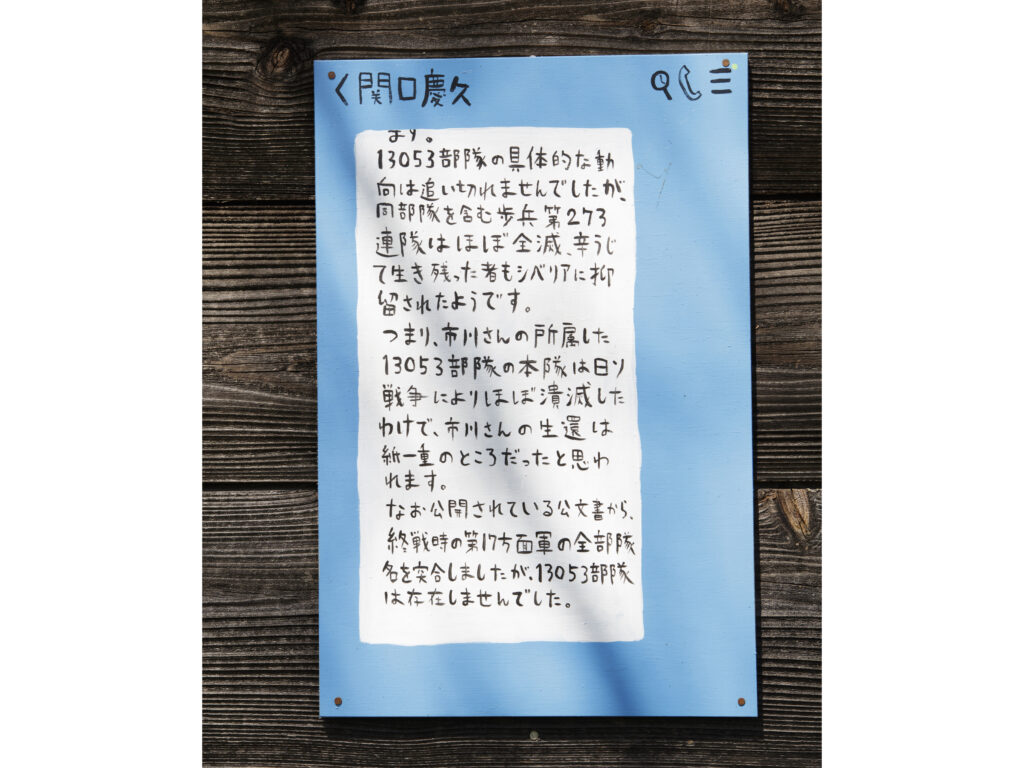 く関口慶久
ます。
13053部隊の具体的な動
向は追い切れませんでしたが、
同部隊を含む歩兵第273
連隊はほぼ全滅、辛うじ
て生き残った者もシベリアに抑
留されたようです。
つまり、市川さんの所属した
13053部隊の本隊は日ソ
戦争によりほぼ潰滅した
わけで、市川さんの生還は
紙一重のところだったと思わ
れます。
なお公開されている公文書から、
終戦時の第17方面軍の全部隊
名を突合しましたが、13053部隊
は存在しませんでした。